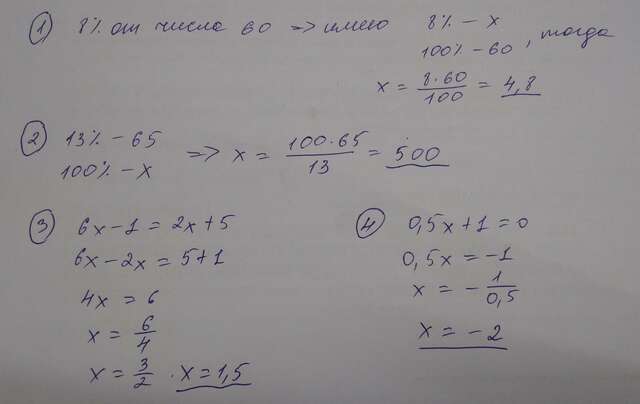 ① 8% от числа 60 => имею 8% – x
100% – 60, тогда
x = 8·60/100 = 4,8
② 13% – 65
100% – x => x = 100·65/13 = 500
③ 6x – 1 = 2x + 5
6x – 2x = 5 + 1
4x = 6
x = 6/4
x = 3/2 . x = 1,5
④ 0,5x + 1 = 0
0,5x = –1
x = – 1/0,5
x = – 2